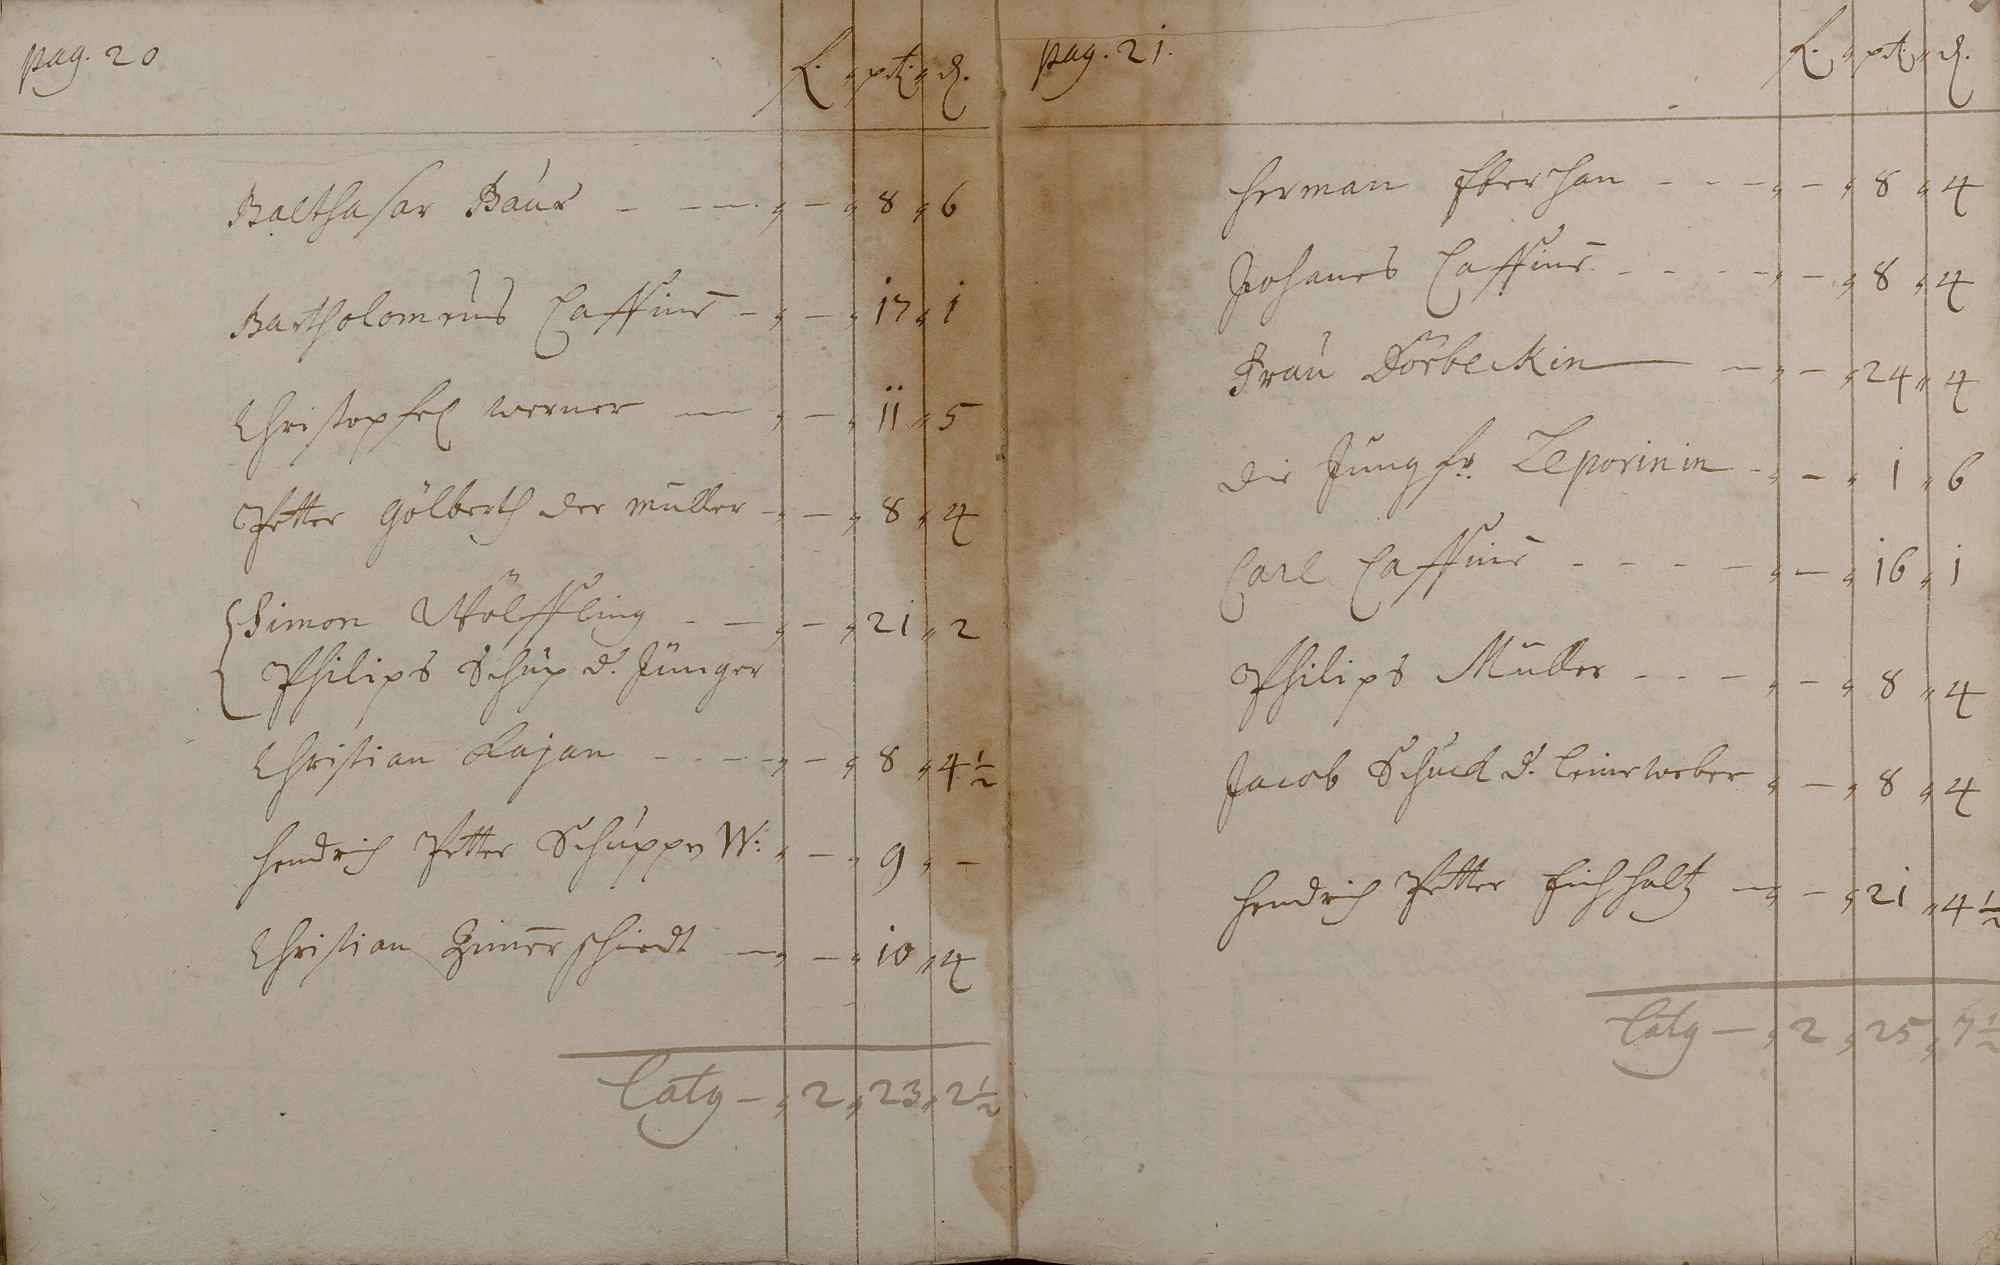 pag. 20
L. " pst: " d.
Balthasar Baur - - - - " - " 8 " 6
Bartholomeus Cassius - " - " 17 " 1
Christopfel werner - " - " 11 " 5
Petter Gölberth der muller - " - " 8 " 4
Simon Wölffling - - " - " 21 " 2
Philips Schup d. Jünger
Christian Lajan - - - - " - " 8 " 4 1/2
Hendrich Petter Schuppen W: " - " 9 " -
Christian Zimerschiedt - " - " 10 " 4
Latg - " 2 " 23 " 2 1/2
pag. 21.
L. " pst: " d.
Herman Eberhan - - - - " - " 8 " 4
Johanes Cassius - - - - " - " 8 " 4
Frau Dörbeckin - " - " 24 " 4
die Jungfr. Leporinin - " - " 1 " 6
Carl Cassius - - - - " - " 16 " 1
Philips Muller - - - " - " 8 " 4
Jacob Schuck d. leineweber " - " 8 " 4
Hendrich Petter Eichholtz - " - " 21 " 4 1/2
Latg - " 2 " 25 " 7 1/2